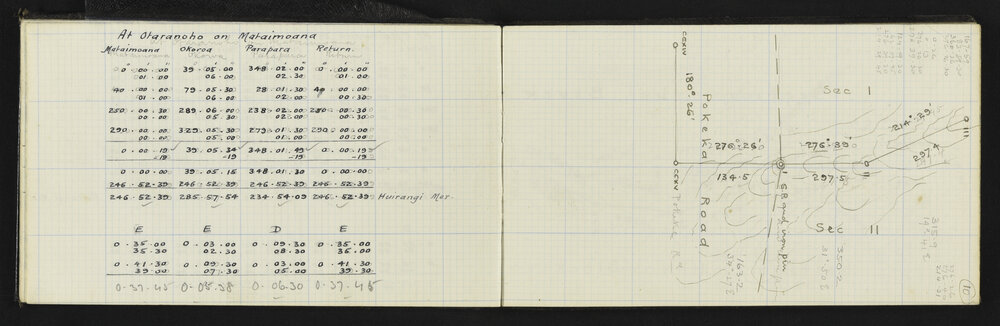 At Otaranoho on Mataimoana
Mataimoana Okoroa Parapara Return.
0 . 00 . 00 39 . 05 . 00 348 . 02 . 00 0 . 00 . 00
01 . 00 06 . 00 02 . 30 01 . 00
40 . 00 . 00 79 . 05 . 30 28 . 01 . 30 40 . 00 . 00
01 . 00 06 . 00 02 . 00 00 . 30
250 . 00 . 30 289 . 06 . 00 238 . 02 . 00 250 . 00 . 30
00 . 00 05 . 30 02 . 30 00 . 00
290 . 00 . 00 329 . 05 . 30 279 . 01 . 30 290 . 00 . 00
00 . 00 05 . 00 01 . 00 00 . 00
0 . 00 . 19 39 . 05 . 34 348 . 01 . 49 0 . 00 . 19
-19 -19 -19 -19
0 . 00 . 00 39 . 05 . 15 348 . 01 . 30 0 . 00 . 00
246 . 52 . 39 246 . 52 . 39 246 . 52 . 39 246 . 52 . 39
246 . 52 . 39 285 . 57 . 54 234 . 54 . 09 246 . 52 . 39 Huirangi Mer.
E E D E
0 . 35 . 00 0 . 03 . 00 0 . 09 . 30 0 . 35 . 00
35 . 30 02 . 30 08 . 30 35 . 00
0 . 41 . 30 0 . 09 . 30 0 . 03 . 00 0 . 41 . 30
39 . 00 07 . 30 05 . 00 39 . 30
0 . 37 . 45 0 . 05 . 38 0 . 06 . 30 0 . 37 . 45
CCXIV
180° . 25'
Pokeka Road
Sec I
214° . 29'
III
297.4
276° . 26'
276° . 39'
CCXV
134.5
I
297.5
II
Sec II
350.2
163.2
10